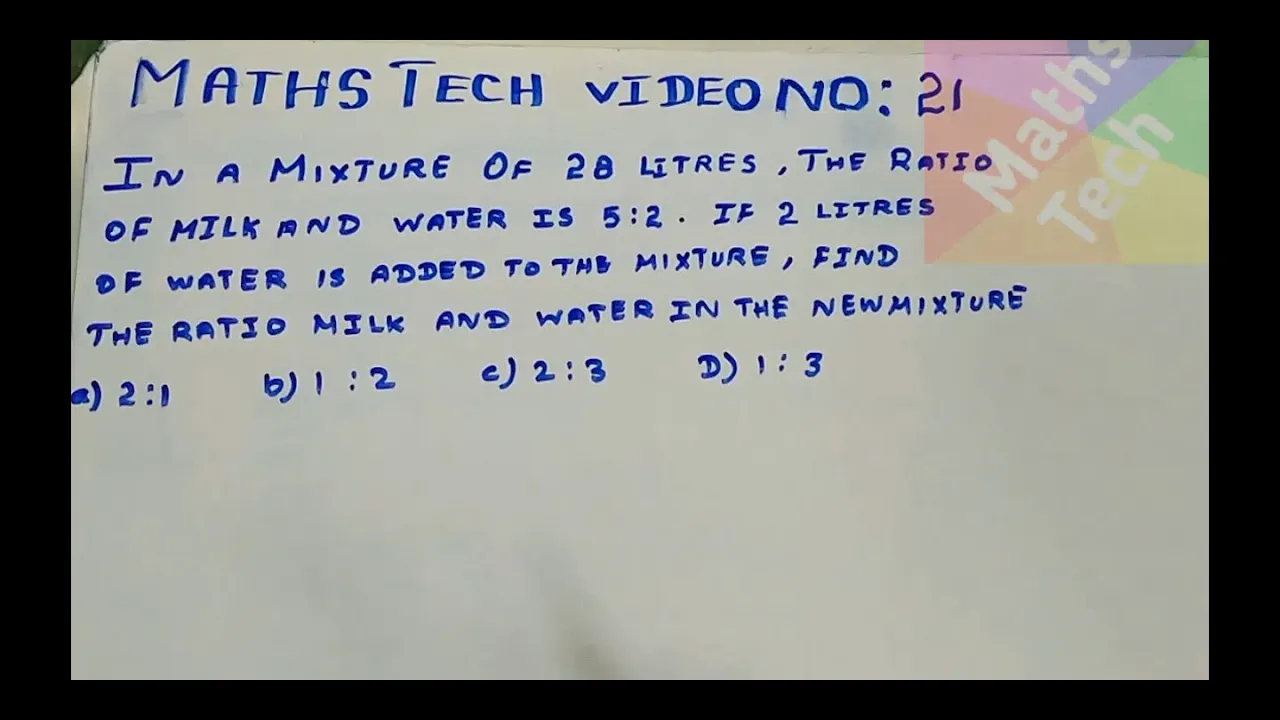 MATHS TECH VIDEO NO: 21
Maths
Tech
IN A MIXTURE OF 28 LITRES, THE RATIO
OF MILK AND WATER IS 5:2. IF 2 LITRES
OF WATER IS ADDED TO THE MIXTURE, FIND
THE RATIO MILK AND WATER IN THE NEW MIXTURE
a) 2:1 b) 1:2 c) 2:3 D) 1:3